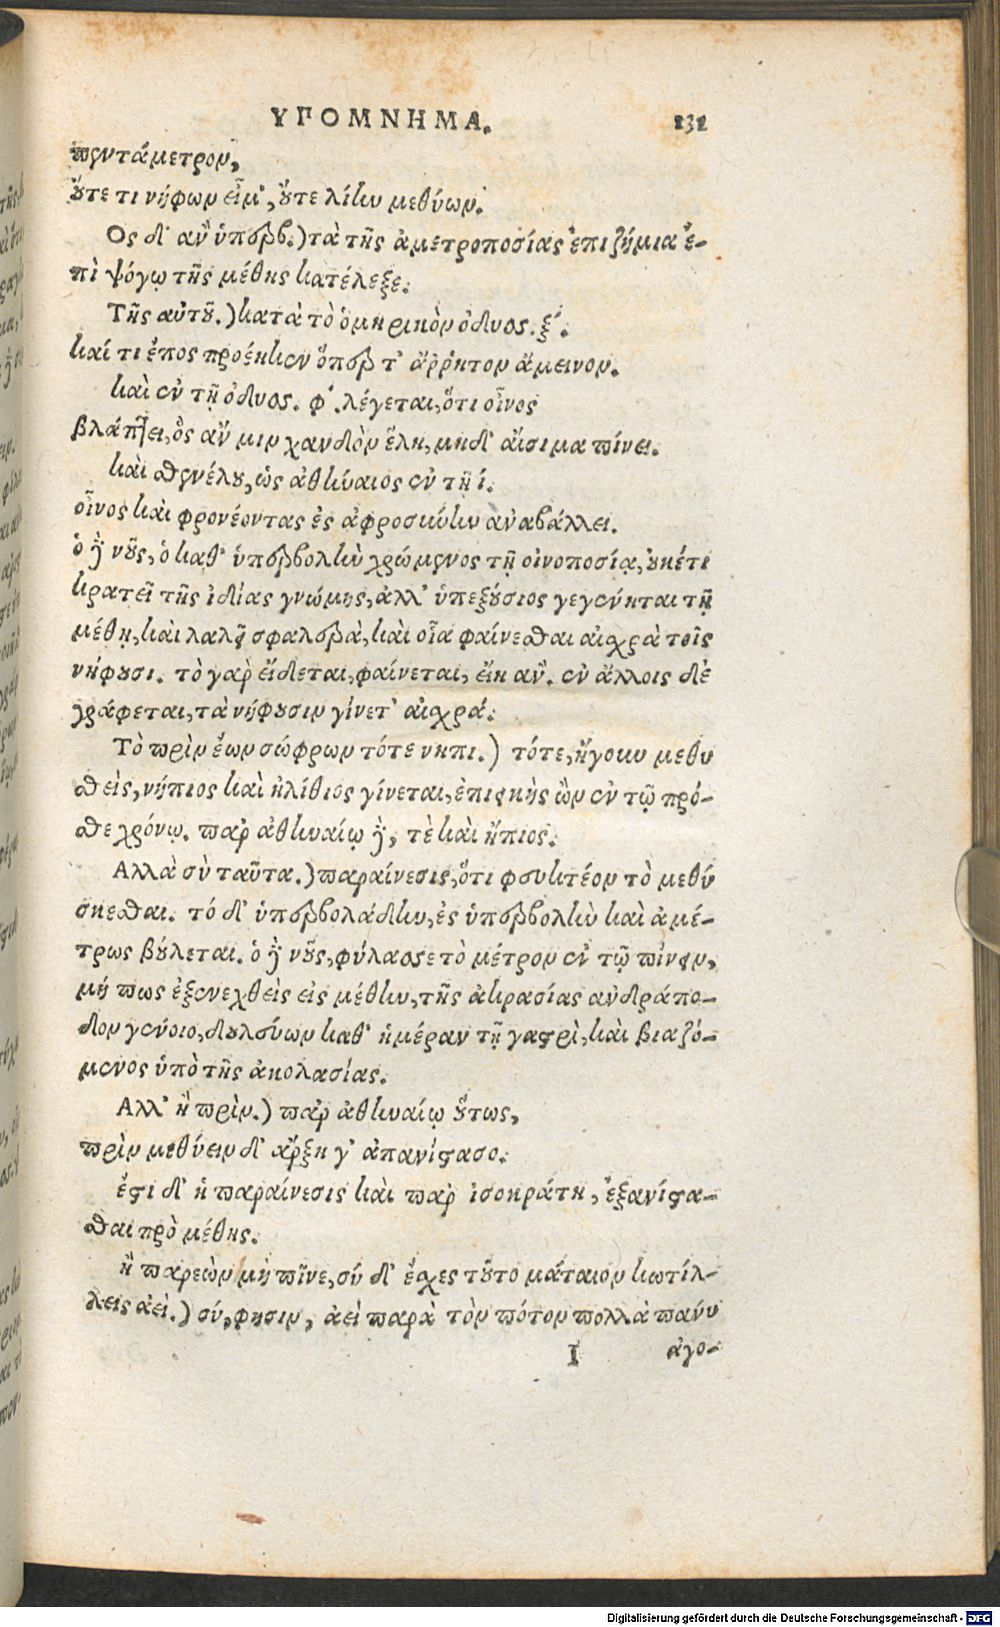 ΥΠΟΜΝΗΜΑ. 131
πεντάμετρον,
οὔτε τι νήφων εἶμ', οὔτε λίην μεθύων.
Ος δ' ἂν ὑπερβ.) τὰ τῆς ἀμετροποσίας ἐπιζήμια ἐ-
πὶ ψόγῳ τῆς μέθης κατέλεξε.
Τῆς αὐτοῦ.) κατὰ τὸ ὁμηρικὸν ὀδυσσ. ξ΄.
καί τι ἔπος προέηκεν ὅπερ τ' ἄρρητον ἄμεινον.
καὶ ἐν τῇ ὀδυσσ. φ΄. λέγεται, ὅτι οἶνος
βλάπτει, ὃς ἄν μιν χανδὸν ἕλη, μηδ' αἴσιμα πίνει.
καὶ θενέλου, ὡς ἀθήναιος ἐν τῇ ί.
οἶνος καὶ φρονέοντας ἐς ἀφροσύνην ἀναβάλλει.
ὁ δὲ νοῦς, ὁ καθ' ὑπερβολὴν χρώμενος τῇ οἰνοποσίᾳ, οὐκέτι
κρατεῖ τῆς ἰδίας γνώμης, ἀλλ' ὑπεξούσιος γεγένηται τῇ
μέθῃ, καὶ λαλεῖ σφαλερὰ, καὶ οἷα φαίνεσθαι αἰσχρὰ τοῖς
νήφουσι. τὸ γὰρ εἴδεται, φαίνεται, εἴη ἄν. ἐν ἄλλοις δὲ
γράφεται, τὰ νήφουσιν γίνετ' αἰσχρά.
Τὸ πρὶν ἐὼν σώφρων τότε νηπι.) τότε, ἤγουν μεθυ
σθεὶς, νήπιος καὶ ἠλίθιος γίνεται, ἐπιεικὴς ὢν ἐν τῷ πρό-
σθε χρόνῳ. παρ' ἀθηναίῳ δὲ, τὲ καὶ ἤπιος.
Αλλὰ σὺ ταῦτα.) παραίνεσις, ὅτι φευκτέον τὸ μεθύ
σκεσθαι. τό δ' ὑπερβολάδην, ἐς ὑπερβολὴν καὶ ἀμέ-
τρως βούλεται. ὁ δὲ νοῦς, φύλασσε τὸ μέτρον ἐν τῷ πίνειν,
μή πως ἐξενεχθεὶς εἰς μέθην, τῆς ἀκρασίας ἀνδράπο-
δον γένοιο, δουλεύων καθ' ἡμέραν τῇ γαστρὶ, καὶ βιαζό-
μενος ὑπὸ τῆς ἀκολασίας.
Αλλ' ἢ πρὶν.) παρ' ἀθηναίῳ οὕτως,
πρὶν μεθύειν δ' ἄρξῃ γ' ἀπανίστασο.
ἔστι δ' ἡ παραίνεσις καὶ παρ' ἰσοκράτη, ἐξανίστα-
σθαι πρὸ μέθης.
ἢ παρεὼν μὴ πῖνε, σύ δ' ἔγχες τοῦτο μάταιον κωτίλ-
λεις ἀεί.) σύ, φησιν, ἀεὶ παρὰ τὸν πότον πολλὰ πάνυ
I ἀγο-
Digitalisierung gefördert durch die Deutsche Forschungsgemeinschaft - DFG